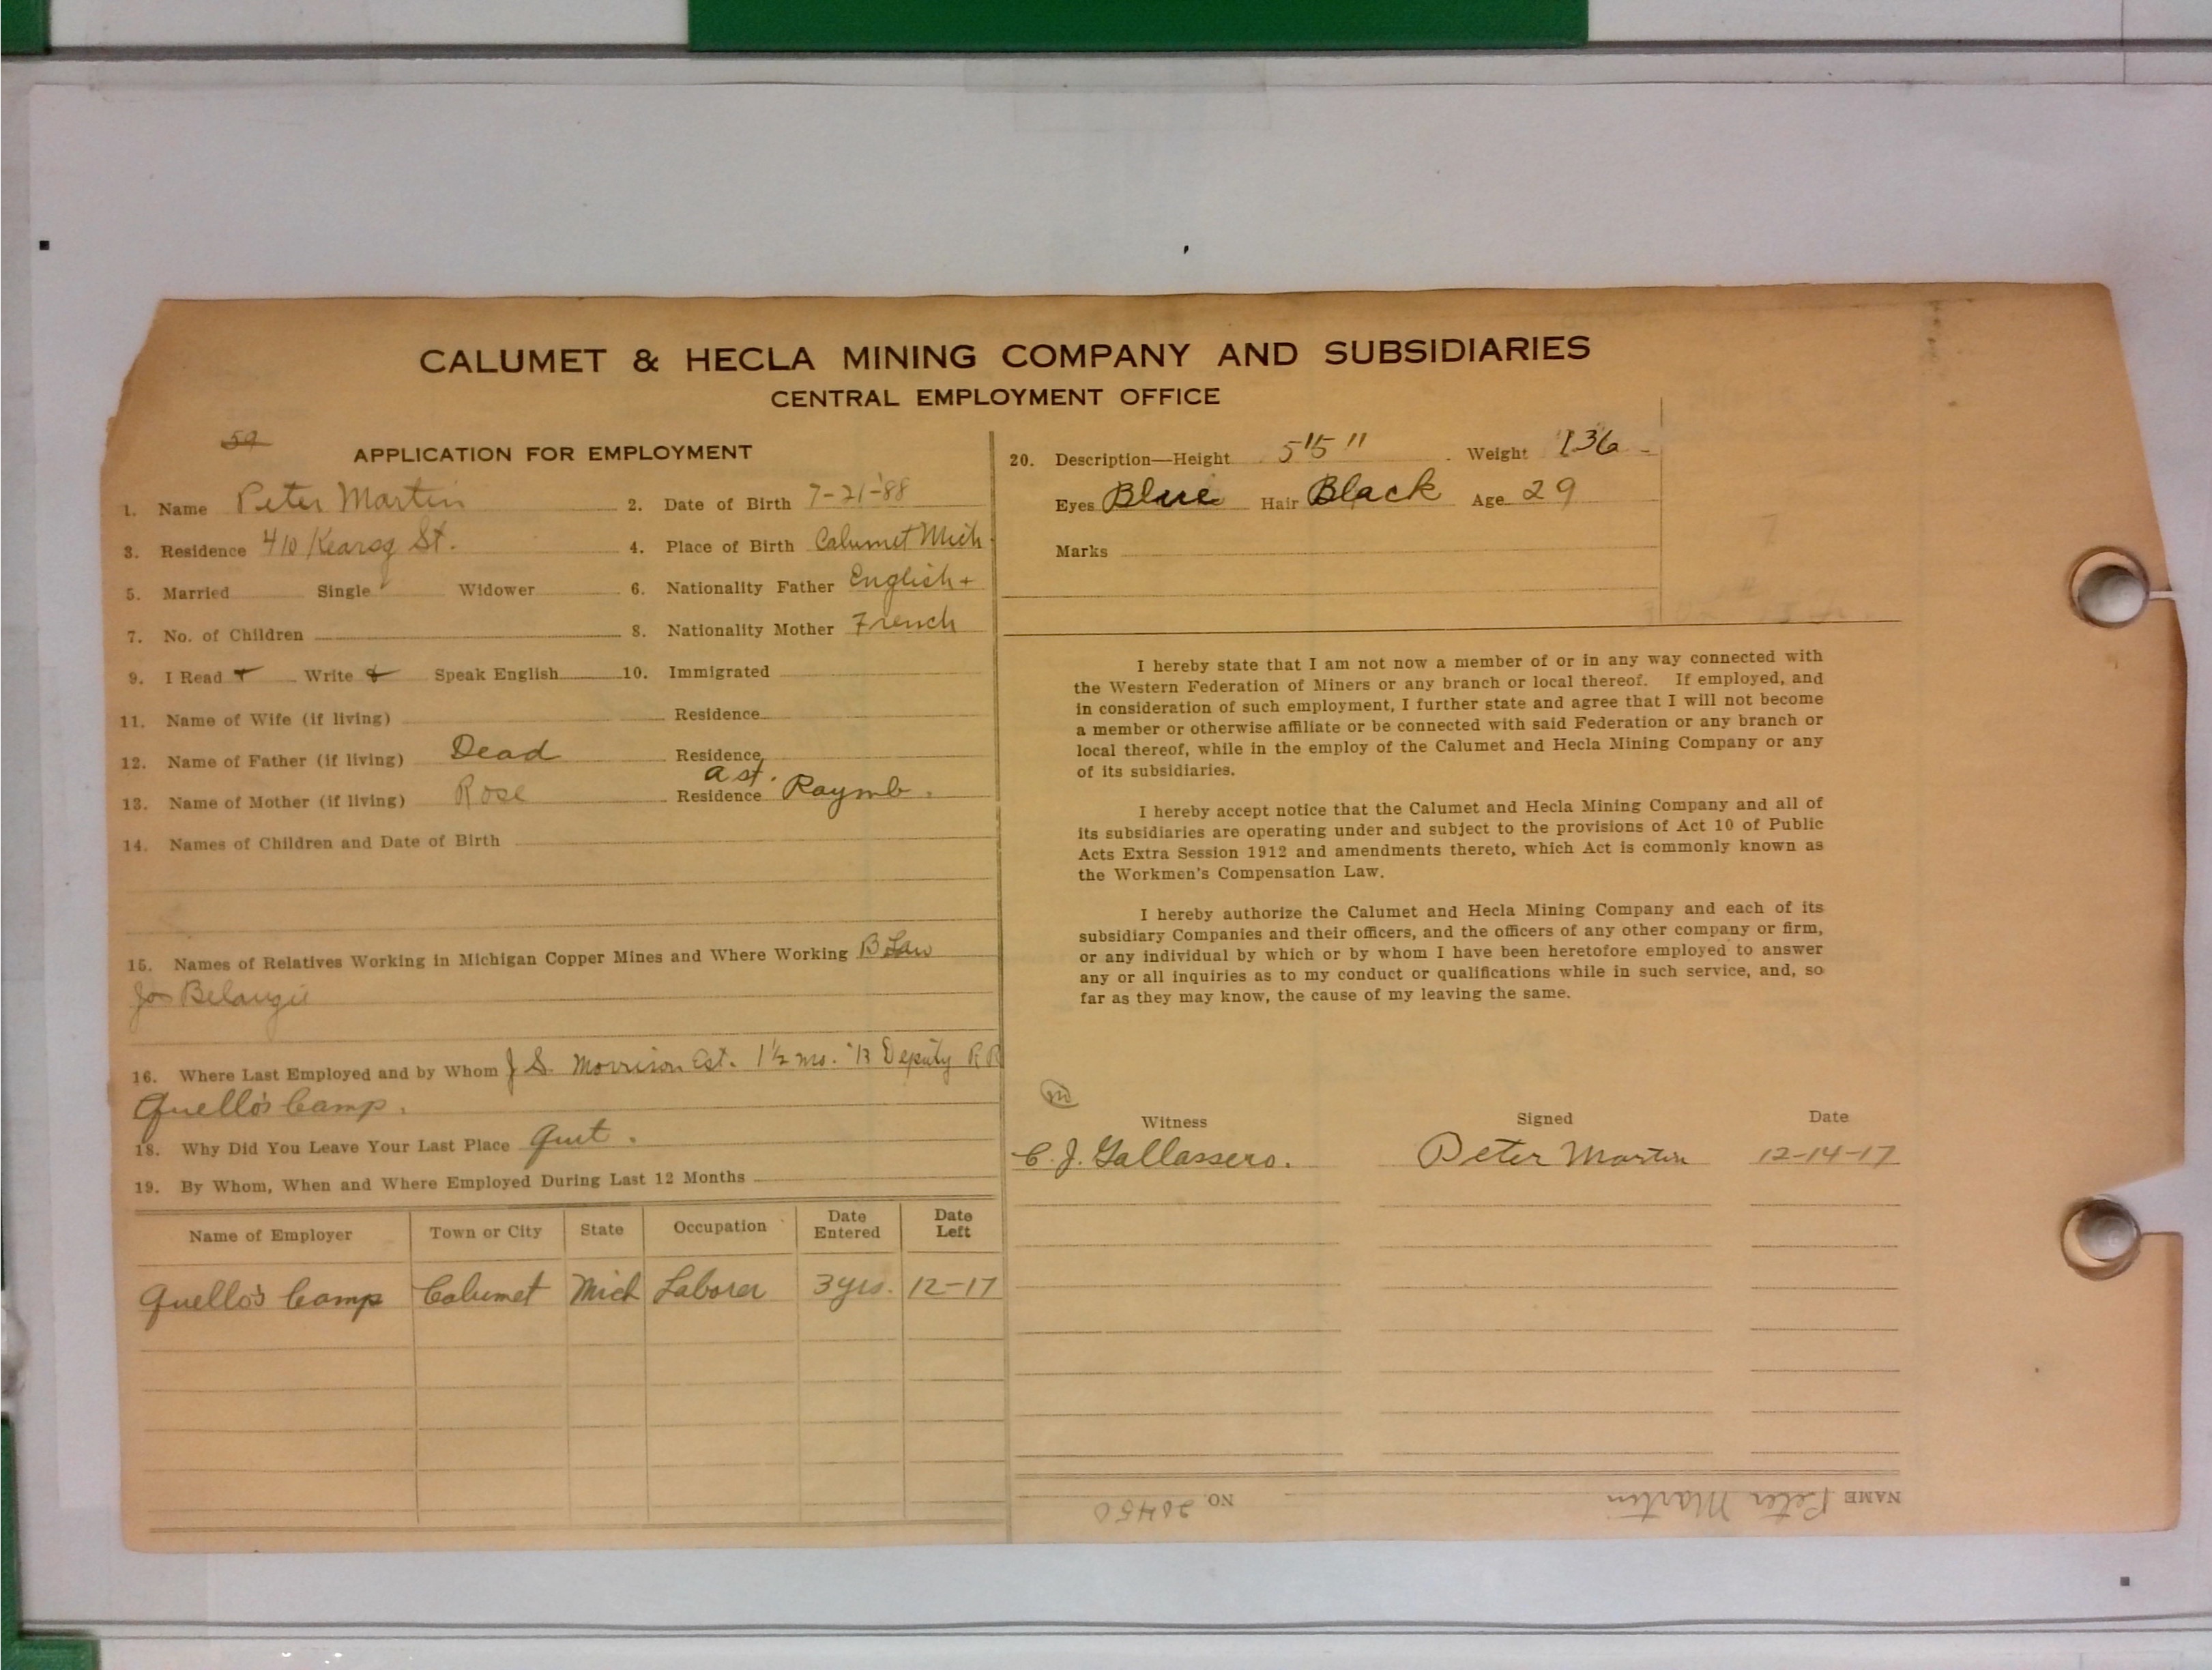 CALUMET & HECLA MINING COMPANY AND SUBSIDIARIES
CENTRAL EMPLOYMENT OFFICE
59
APPLICATION FOR EMPLOYMENT
1. Name Peter Martin
2. Date of Birth 7-21-'88
3. Residence 410 Kearsg St.
4. Place of Birth Calumet Mich
5. Married Single Widower
6. Nationality Father English +
7. No. of Children
8. Nationality Mother French
9. I Read Write Speak English
10. Immigrated
11. Name of Wife (if living) Residence
12. Name of Father (if living) Dead Residence
13. Name of Mother (if living) Rose Residence a st. Raymb.
14. Names of Children and Date of Birth
15. Names of Relatives Working in Michigan Copper Mines and Where Working B Law
Jos Belangie
16. Where Last Employed and by Whom J S. Morrison Est. 1½ mo. '13 Deputy R R
Quello's Camp.
18. Why Did You Leave Your Last Place Quit.
19. By Whom, When and Where Employed During Last 12 Months
Name of Employer Town or City State Occupation Date Entered Date Left
Quello's Camp Calumet Mich Laborer 3 yrs. 12-17
20. Description—Height 5"5" Weight 136
Eyes Blue Hair Black Age 29
Marks
I hereby state that I am not now a member of or in any way connected with
the Western Federation of Miners or any branch or local thereof. If employed, and
in consideration of such employment, I further state and agree that I will not become
a member or otherwise affiliate or be connected with said Federation or any branch or
local thereof, while in the employ of the Calumet and Hecla Mining Company or any
of its subsidiaries.
I hereby accept notice that the Calumet and Hecla Mining Company and all of
its subsidiaries are operating under and subject to the provisions of Act 10 of Public
Acts Extra Session 1912 and amendments thereto, which Act is commonly known as
the Workmen's Compensation Law.
I hereby authorize the Calumet and Hecla Mining Company and each of its
subsidiary Companies and their officers, and the officers of any other company or firm,
or any individual by which or by whom I have been heretofore employed to answer
any or all inquiries as to my conduct or qualifications while in such service, and, so
far as they may know, the cause of my leaving the same.
m
Witness Signed Date
C. J. Gallassero. Peter Martin 12-14-17
NAME Peter Martin NO. 20450